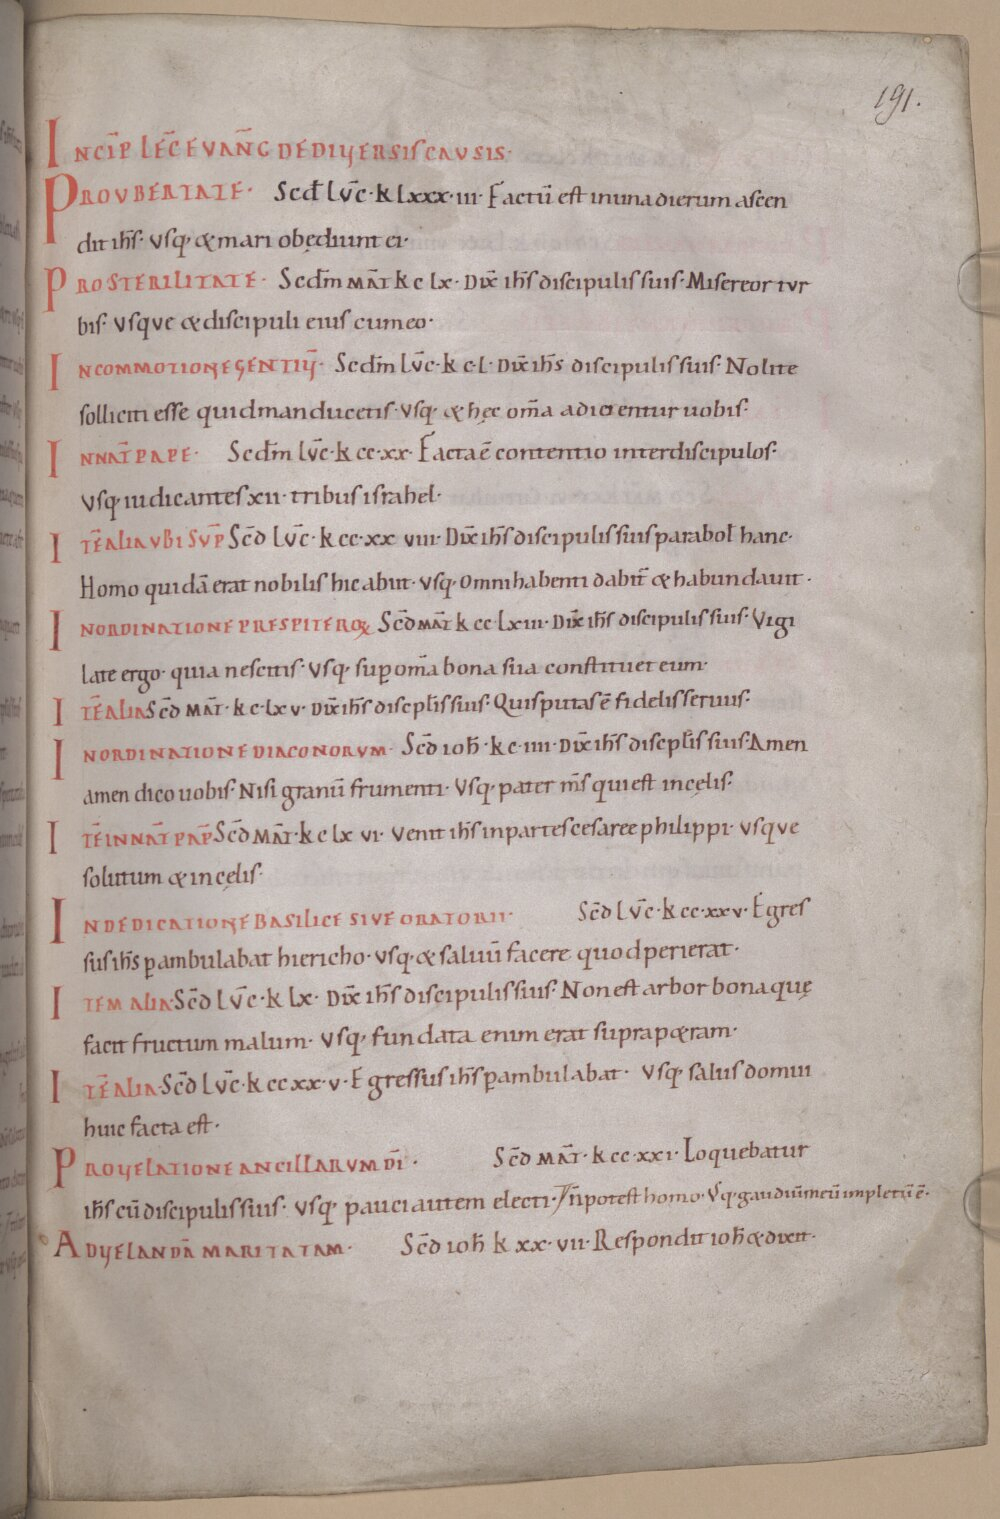 191.
INCIP̄ LEC̄ EVANG̅ DE DIVERSIS CAVSIS·
PRO VBERTATE· Scd̄ Lūc· k Lxxx·iii· Factū est in una dierum ascen
dit ih̄s· Vsq· & mari obędiunt ei·
PRO STERILITATE· Scdm̄ MAT̄ k c Lx· Dix̄ ih̄s discipulis suis· Misereor tur
bis· Vsque & discipuli eius cum eo·
IN COMMOTIONE GENTIŪ· Scdm̄ Lūc· k c·L· Dix̄ ih̄s discipulis suis· Nolite
solliciti esse quid manducetis· Vsq· & hęc om̄a adicientur uobis·
IN NAT̄ PAPE· Scdm̄ Lūc· k cc·xx· Facta ē contentio inter discipulos·
Vsq· iudicantes xii· tribus israhel·
ITĒ ALIA VBI SVP̄ Scd̄ Lūc· k cc·xx viii· Dix̄ ih̄s discipulis suis parabol̄ hanc·
Homo quidā erat nobilis hic abiit· Vsq· Omni habenti dabit̄ & habundauit·
IN ORDINATIONE PRESPITEROꝜ Scd̄ MAT̄ k cc·Lxiii· Dix̄ ih̄s discipulis suis· Vigi
late ergo· quia nescitis· Vsq· sup om̄a bona sua constituet eum·
ITĒ ALIA Scd̄ MAT̄· k c·Lx v· Dix̄ ih̄s discplīs suis· Quis putas ē fidelis seruus·
IN ORDINATIONE DIACONORVM· Scd̄ ioh̄· k c·iiii· Dix̄ ih̄s discplīs suis· Amen
amen dico uobis· Nisi granū frumenti· Vsq· pater m̄s qui est in cęlis·
ITĒ IN NAT̄ PAP̄ Scd̄ MAT̄· k c Lx vi· Venit ih̄s in partes cesaree philippi· Vsque
solutum & in cęlis·
IN DEDICATIONE BASILICE SIVE ORATORII· Scd̄ Lūc· k cc·xxv· Egres
sus ih̄s ꝑambulabat hiericho· Vsq· & saluū facere quod perierat·
ITEM ALIA· Scd̄ Lūc· k Lx· Dix̄ ih̄s discipulis suis· Non est arbor bona quę
facit fructum malum· Vsq· fundata enim erat supra p&ram·
ITĒ ALIA· Scd̄ Lūc· k cc xx·v· Egressus ih̄s ꝑambulabat· Vsq· salus domui
huic facta est·
PRO VELATIONE ANCILLARVM DI̅· Scd̄ MAT̄· k cc·xxi· Loquebatur
ih̄s cū discipulis suis· Vsq· pauci autem electi· In̄ potest homo· Vq· gaudiū meū impletū ē·
AD VELANDĀ MARITATAM· Scd̄ ioh̄ k xx·vii· Respondit ioh̄ & dixit·